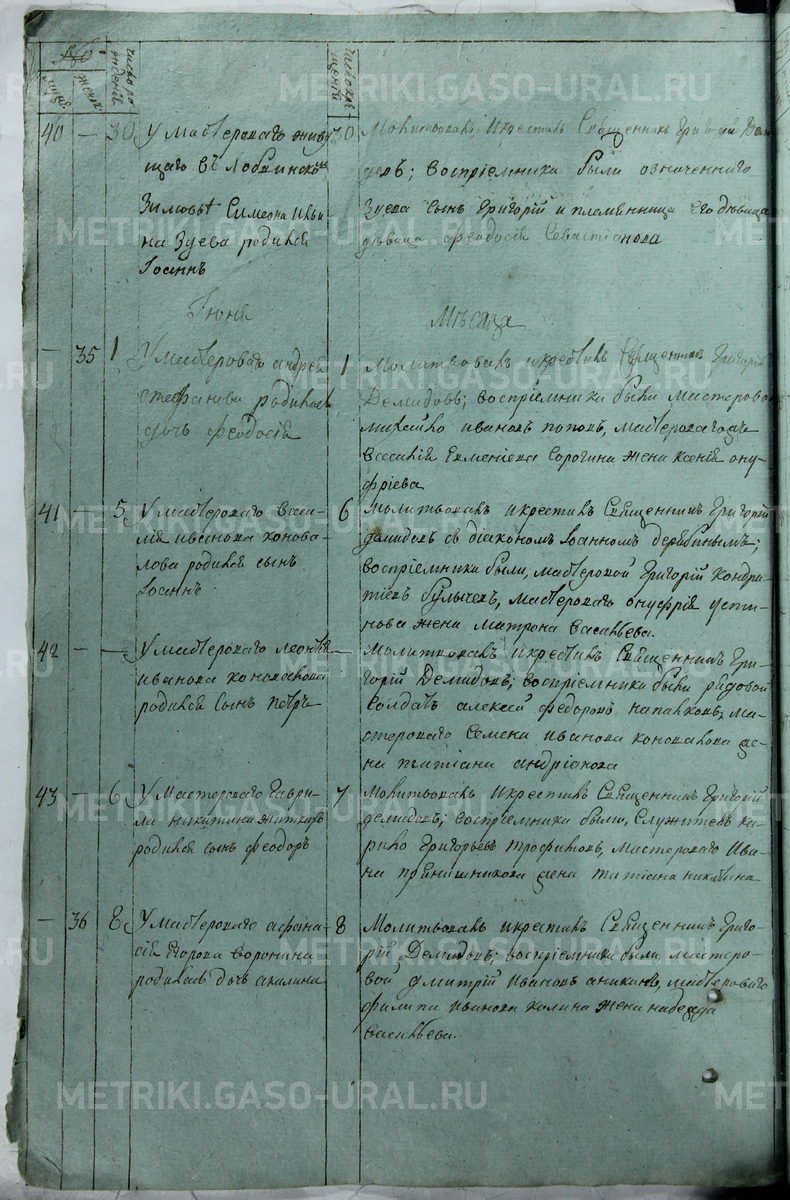 мужей
женск
число ро
ждений
число кре
щенїя
40 — 30 У мастероваго живу
щаго въ Лобвинском
Зимовьѣ Симеона Ива
на Зуева родился
Іоаннъ
30 Молитвовалъ и крестилъ Священникъ Григорїй Деми
довъ; воспрїемники были означеннаго
Зуева сынъ Григорїй и племянница его дѣвица
дѣвица Феодосїя Севастїанова
Іюня
Мѣсяца
— 35 1 У мастероваго андрея
стефанова родилась
дочь феодосїя
1 Молитвовалъ и крестилъ Священникъ Григорїй
Демидовъ; воспрїемники были мастеровой
михайло ивановъ поповъ, мастероваго
Василїя Сорогина жена ксенїя ону
фрїева
41 — 5 У мастероваго васи
лїя иванова конова
лова родился сынъ
Іоаннъ
6 молитвовалъ и крестилъ Священникъ Григорїй
демидовъ съ дїакономъ Іоанномъ дерябинымъ;
воспрїемники были, мастеровой Григорїй кондра
тїевъ булычевъ, мастероваго онуфрїя усти
нова жена матрона васильева.
42 — — У мастероваго леонтїя
иванова коновалова
родился сынъ петръ
— молитвовалъ и крестилъ Священникъ Гри
горїй Демидовъ; воспрїемники были рядовой
солдатъ алексѣй федоровъ ма
стероваго семена иванова коновалова же
на татїана андрїанова
43 — 6 У мастероваго гаври
лы никитина
родился сынъ феодоръ
7 Молитвовалъ и крестилъ Священникъ Григорїй
демидовъ; воспрїемники были, служитель ка
рпко Григорьевъ трофимовъ, мастероваго ива
на прянишникова жена татїана никитина
— 36 8 У мастероваго афана
сїя Егорова воронина
родилась дочь акилина
8 Молитвовалъ и крестилъ Священникъ Григо
рїй Демидовъ; воспрїемники были, мастеро
вой дмитрїй ивановъ аникинъ, мастероваго
филипа иванова калина жена надежда
васильева.
METRIKI.GASO-URAL.RU